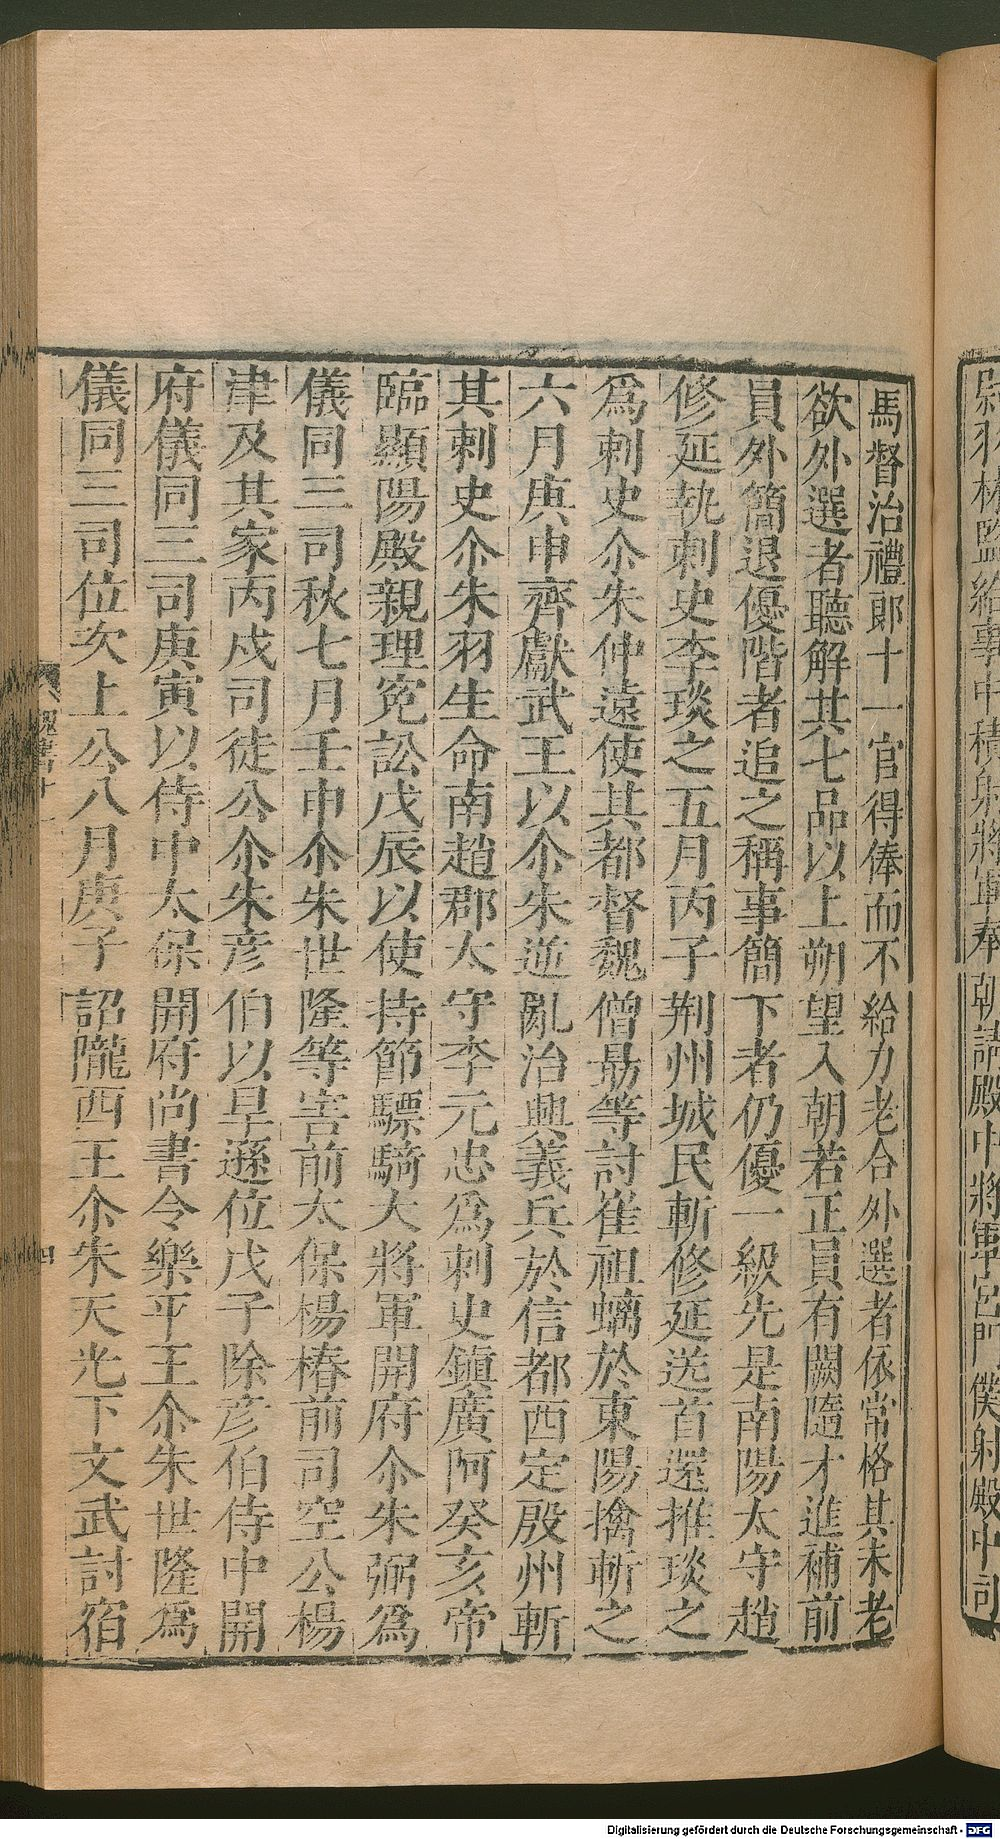 馬督治禮郎十一官得俸而不給力老合外選者依常格其未老
欲外選者聽解其七品以上朔望入朝若正員有闕隨才進補前
員外簡退優階者追之稱事簡下者仍優一級先是南陽太守趙
修延執刺史李琰之五月丙子荆州城民斬修延送首還推琰之
爲刺史尒朱仲遠使其都督魏僧勗等討崔祖螭於東陽擒斬之
六月庚申齊獻武王以尒朱逆亂治興義兵於信都西定殷州斬
其刺史尒朱羽生命南趙郡太守李元忠爲刺史鎮廣阿癸亥帝
臨顯陽殿親理寃訟戊辰以使持節驃騎大將軍開府尒朱弼爲
儀同三司秋七月壬申尒朱世隆等害前太保楊椿前司空公楊
津及其家丙戌司徒公尒朱彦伯以旱遜位戊子除彦伯侍中開
府儀同三司庚寅以侍中太保開府尚書令樂平王尒朱世隆爲
儀同三司位次上公八月庚子詔隴西王尒朱天光下文武討宿
魏書十一
四
尉羽林監給事中積射將軍奉朝請殿中將軍宮門僕射殿中司
Digitalisierung gefördert durch die Deutsche Forschungsgemeinschaft - DFG